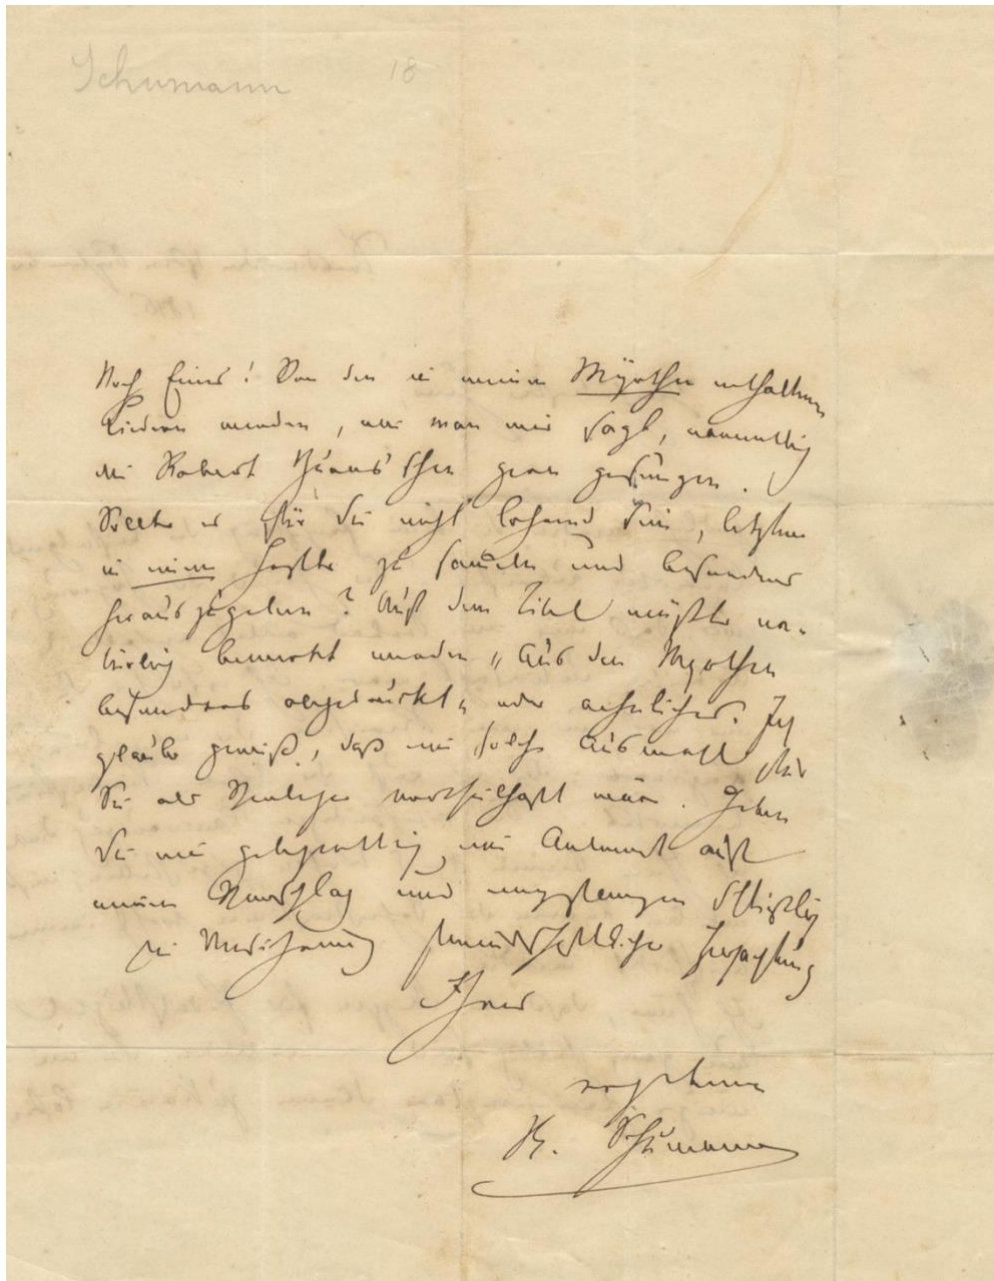 Schumann 18
Noch Eines! Von den in meinen Myrthen enthaltenen
Liedern werden, wie man mir sagt, namentlich
die Robert Burns'schen gern gesungen.
Sollte es für Sie nicht lohnend sein, letztere
in einem Hefte zu sammeln und besonders
herauszugeben? Auf dem Titel müßte na-
türlich bemerkt werden „Aus den Myrthen
besonders abgedruckt„ oder aehnliches. Ich
glaube gewiß, daß eine solche Auswahl für
Sie als Verleger vortheilhaft wäre. Geben
Sie mir gelegentlich eine Antwort auf
meinen Vorschlag und empfangen schließlich
die Versicherung freundschaftlicher Hochachtung
Ihres
ergebenen
R. Schumann